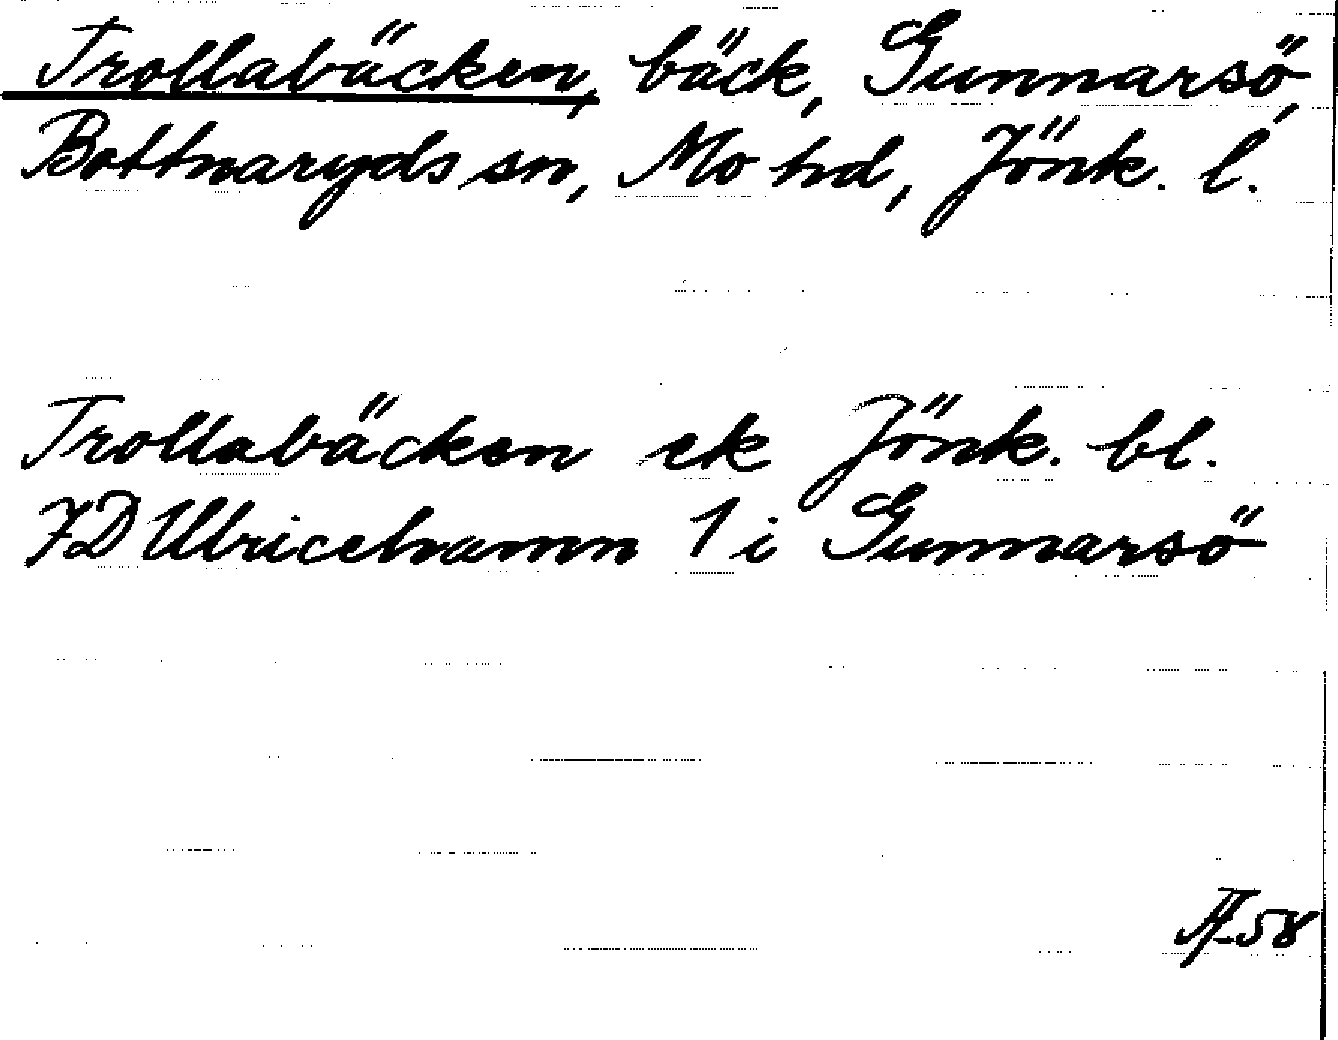 Trollabäcken, bäck, Gunnarsö,
Bottnaryds sn, Mo hd, Jönk. l.
Trollabäcken ek Jönk. bl.
7D Ulricehamn 1 i Gunnarsö